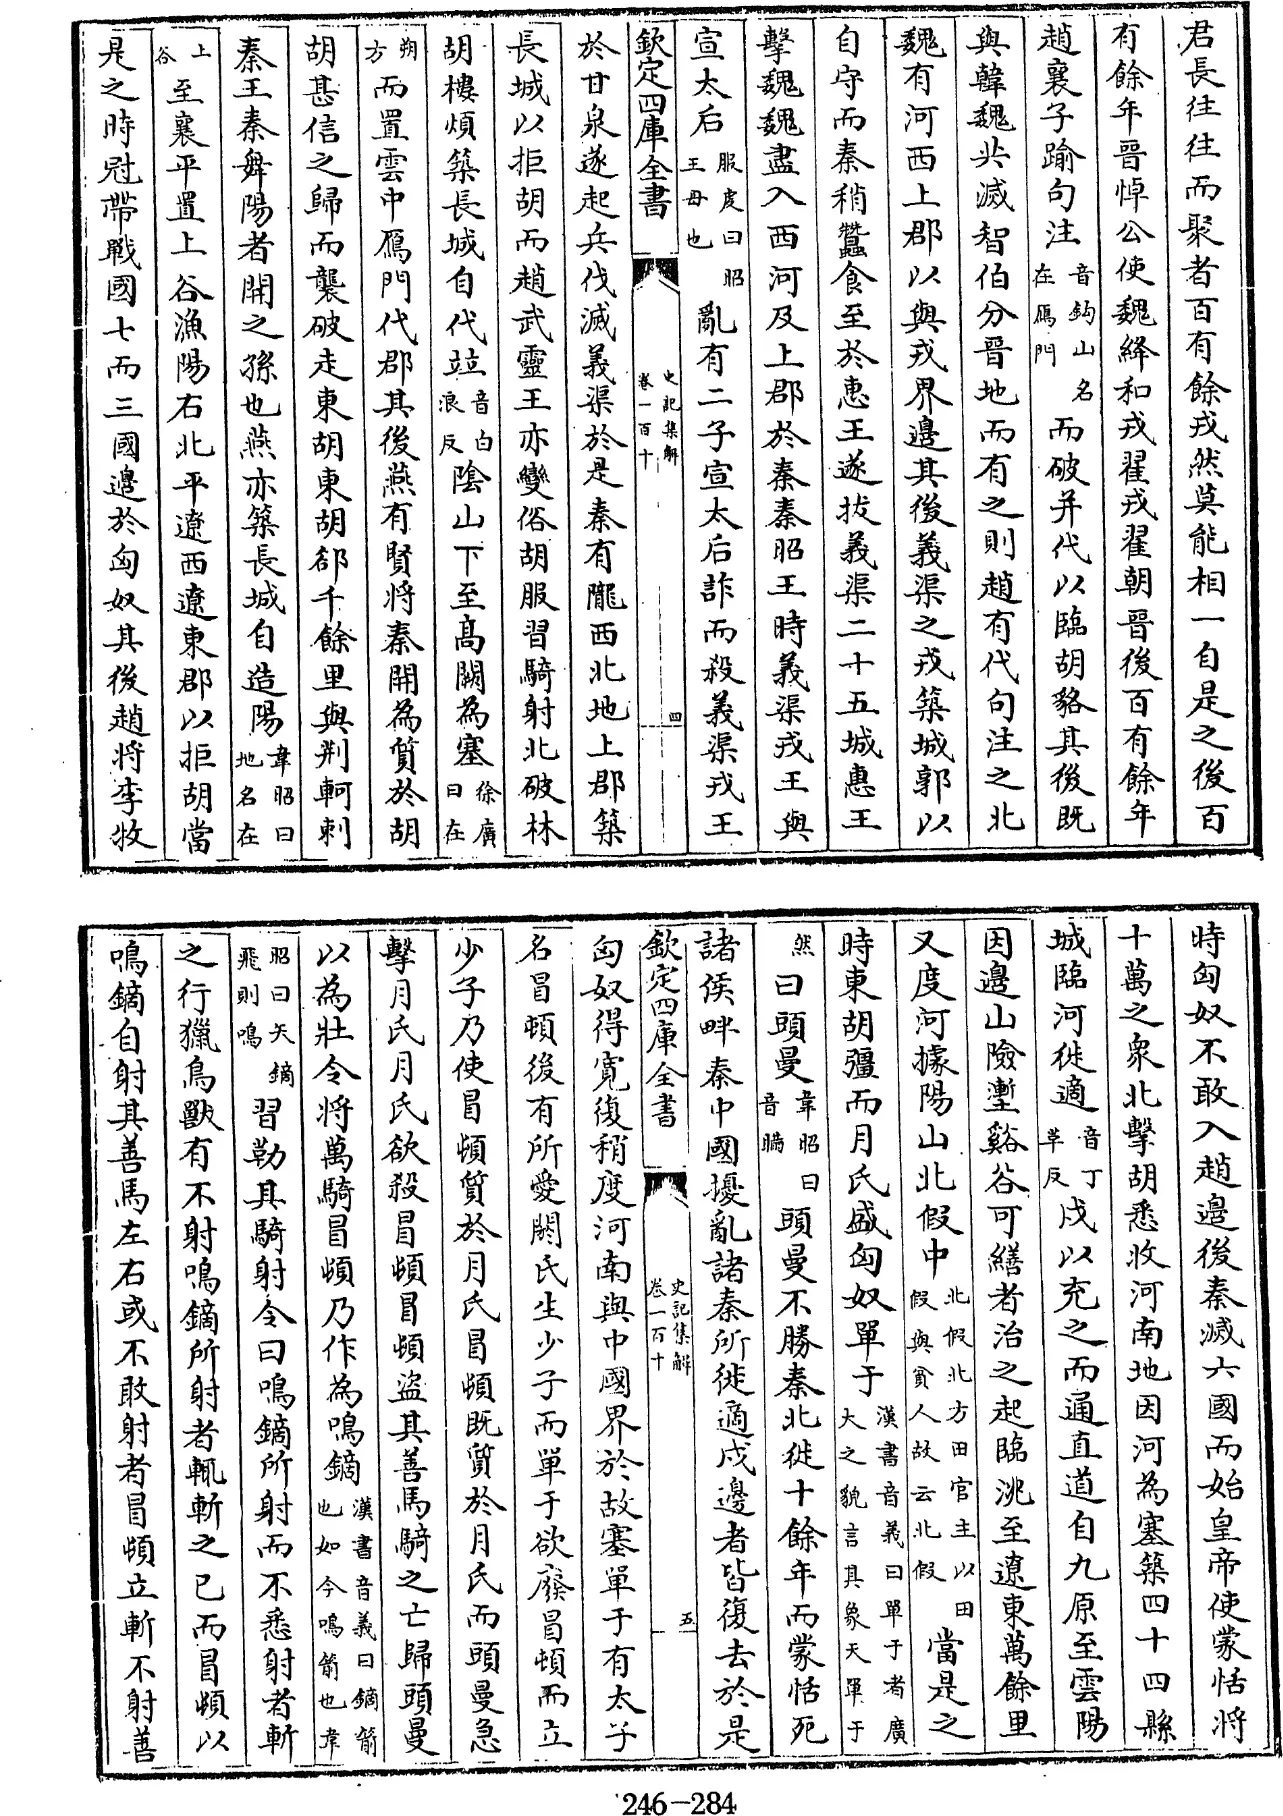 君長往往而聚者百有餘戎然莫能相一自是之後百
有餘年晉悼公使魏絳和戎翟戎翟朝晉後百有餘年
趙襄子踰句注音鈎山名在鴈門而破并代以臨胡貉其後既
與韓魏共滅智伯分晉地而有之則趙有代句注之北
魏有河西上郡以與戎界邊其後義渠之戎築城郭以
自守而秦稍蠶食至於惠王遂拔義渠二十五城惠王
擊魏魏盡入西河及上郡於秦秦昭王時義渠戎王與
宣太后服虔曰昭王母也亂有二子宣太后詐而殺義渠戎王
欽定四庫全書
史記集解
卷一百十
四
於甘泉遂起兵伐滅義渠於是秦有隴西北地上郡築
長城以拒胡而趙武靈王亦變俗胡服習騎射北破林
胡樓煩築長城自代竝音白浪反陰山下至高闕為塞徐廣曰在
朔方而置雲中鴈門代郡其後燕有賢將秦開為質於胡
胡甚信之歸而襲破走東胡東胡郤千餘里與荆軻刺
秦王秦舞陽者開之孫也燕亦築長城自造陽韋昭曰地名在
上谷至襄平置上谷漁陽右北平遼西遼東郡以拒胡當
是之時冠帶戰國七而三國邊於匈奴其後趙將李牧
時匈奴不敢入趙邊後秦滅六國而始皇帝使蒙恬將
十萬之衆北擊胡悉收河南地因河為塞築四十四縣
城臨河徙適音丁革反戍以充之而通直道自九原至雲陽
因邊山險壍谿谷可繕者治之起臨洮至遼東萬餘里
又度河據陽山北假中北假北方田官主以田假與貧人故云北假當是之
時東胡彊而月氏盛匈奴單于漢書音義曰單于者廣大之貌言其象天單于
然曰頭曼韋昭曰音瞞頭曼不勝秦北徙十餘年而蒙恬死
諸侯畔秦中國擾亂諸秦所徙適戍邊者皆復去於是
欽定四庫全書
史記集解
卷一百十
五
匈奴得寛復稍度河南與中國界於故塞單于有太子
名冒頓後有所愛閼氏生少子而單于欲廢冒頓而立
少子乃使冒頓質於月氏冒頓既質於月氏而頭曼急
擊月氏月氏欲殺冒頓冒頓盜其善馬騎之亡歸頭曼
以為壯令將萬騎冒頓乃作為鳴鏑漢書音義曰鏑箭也如今鳴箭也韋
昭曰矢鏑飛則鳴習勒其騎射令曰鳴鏑所射而不悉射者斬
之行獵鳥獸有不射鳴鏑所射者輒斬之已而冒頓以
鳴鏑自射其善馬左右或不敢射者冒頓立斬不射善
246-284